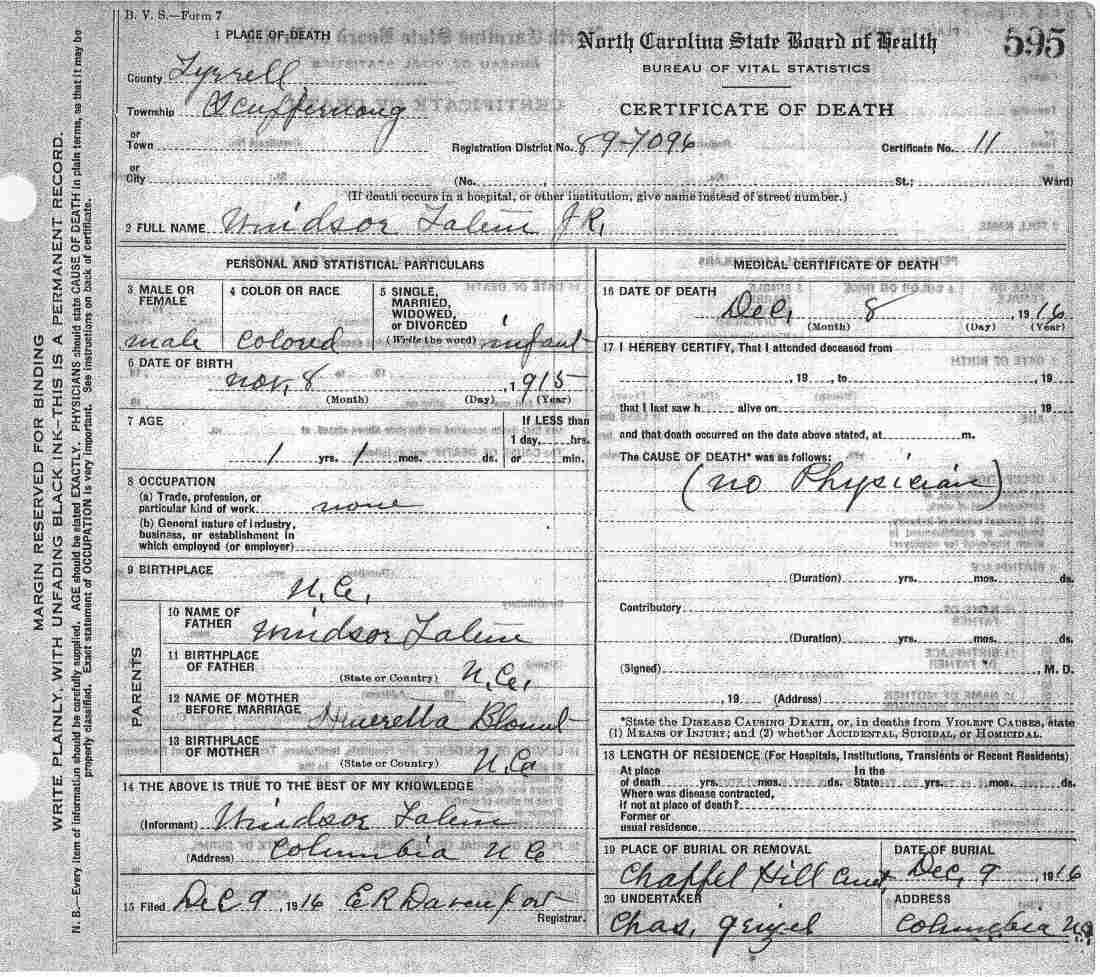 B. V. S.—Form 7
1 PLACE OF DEATH
North Carolina State Board of Health
595
BUREAU OF VITAL STATISTICS
County Tyrrell
CERTIFICATE OF DEATH
Township Scuppernong
or
Town
Registration District No. 89-7096
Certificate No. 11
or
City
(No. , St.; Ward)
(If death occurs in a hospital, or other institution, give name instead of street number.)
2 FULL NAME Windsor JR.
PERSONAL AND STATISTICAL PARTICULARS
3 MALE OR FEMALE
male
4 COLOR OR RACE
colored
5 SINGLE, MARRIED, WIDOWED, or DIVORCED
(Write the word) infant
6 DATE OF BIRTH
Nov, 8, 1915
(Month) (Day) (Year)
7 AGE
If LESS than
1 day, hrs.
1 yrs. 1 mos. ds. or min.
8 OCCUPATION
(a) Trade, profession, or
particular kind of work none
(b) General nature of industry,
business, or establishment in
which employed (or employer)
9 BIRTHPLACE
N.C.
PARENTS
10 NAME OF
FATHER Windsor
11 BIRTHPLACE
OF FATHER
(State or Country) N.C.
12 NAME OF MOTHER
BEFORE MARRIAGE Blount
13 BIRTHPLACE
OF MOTHER
(State or Country) N.C.
14 THE ABOVE IS TRUE TO THE BEST OF MY KNOWLEDGE
(Informant) Windsor
(Address) Columbia N C
15 Filed Dec 9, 1916 E R Davenport
Registrar.
MEDICAL CERTIFICATE OF DEATH
16 DATE OF DEATH
Dec, 8, 1916
(Month) (Day) (Year)
17 I HEREBY CERTIFY, That I attended deceased from
, 19 , to , 19
that I last saw h alive on 19
and that death occurred on the date above stated, at m.
The CAUSE OF DEATH* was as follows:
(no Physician)
(Duration) yrs. mos. ds.
Contributory
(Duration) yrs. mos. ds.
(Signed) , M. D.
, 19 (Address)
*State the DISEASE CAUSING DEATH, or, in deaths from VIOLENT CAUSES, state
(1) MEANS OF INJURY; and (2) whether ACCIDENTAL, SUICIDAL, OR HOMICIDAL.
18 LENGTH OF RESIDENCE (For Hospitals, Institutions, Transients or Recent Residents)
At place In the
of death yrs. mos. ds. State yrs. mos. ds.
Where was disease contracted,
if not at place of death?
Former or
usual residence
19 PLACE OF BURIAL OR REMOVAL
Chappel Hill
DATE OF BURIAL
Dec, 9 1916
20 UNDERTAKER
Chas,
ADDRESS
Columbia NC
MARGIN RESERVED FOR BINDING
WRITE PLAINLY, WITH UNFADING BLACK INK—THIS IS A PERMANENT RECORD.
N. B.—Every item of information should be carefully supplied. AGE should be stated EXACTLY. PHYSICIANS should state CAUSE OF DEATH in plain terms, so that it may be
properly classified. Exact statement of OCCUPATION is very important. See instructions on back of certificate.